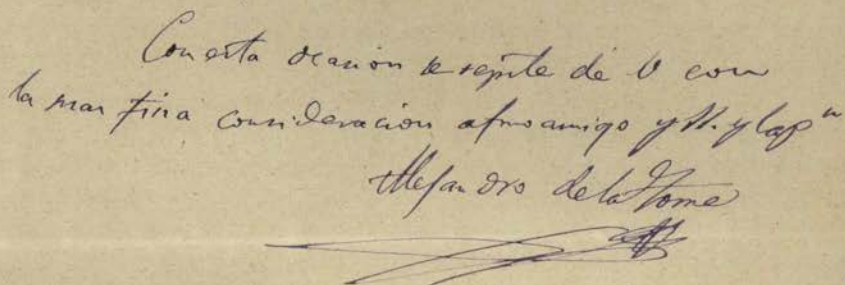 Con esta ocasion se repite de V con
la mas fina consideracion afmo amigo y
Alejandro de la Torre